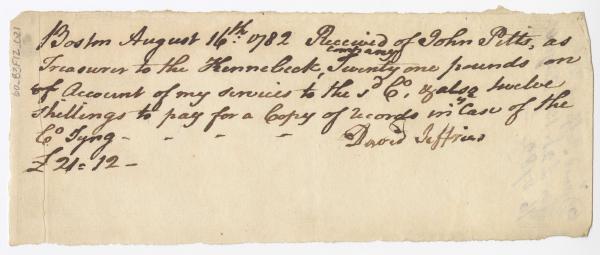 Boston August 16th. 1782 Received of John Pitts, as
Treasurer to the Kennebeck company, Twenty one pounds on
of Account of my services to the sd Co. & also twelve
shillings to pay for a Copy of records in ye Case of the
Co Tyng - - - - David Jeffries
£ 21=12 -